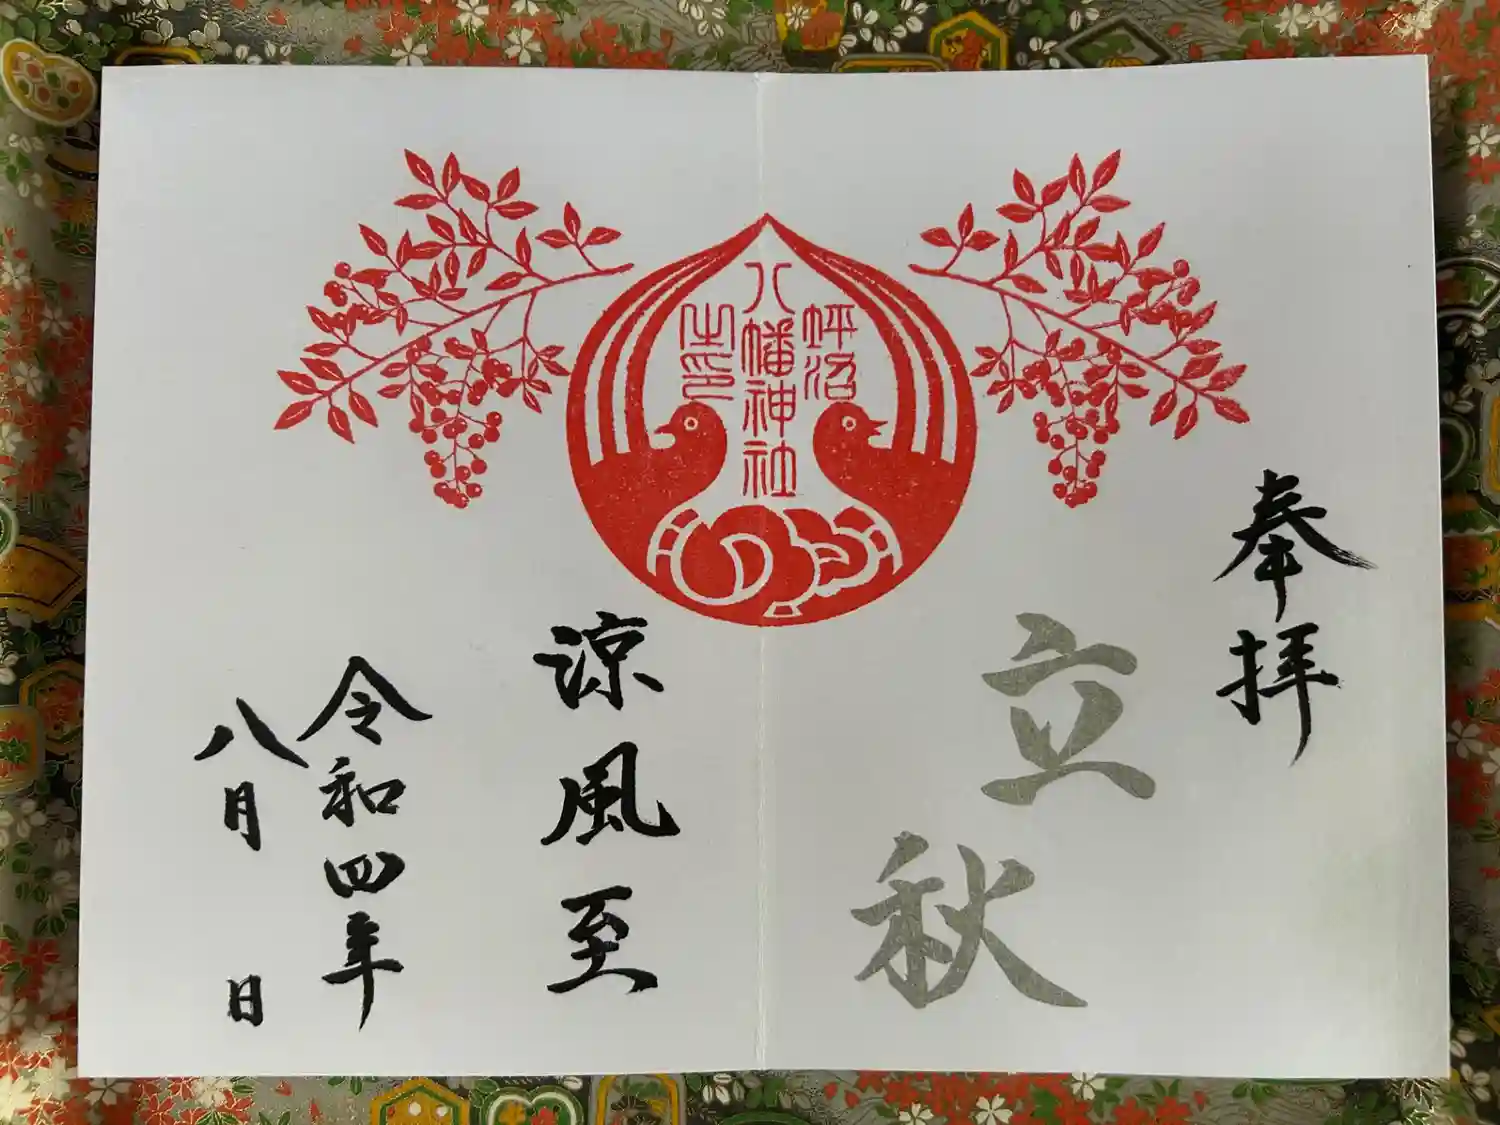 奉拝
立秋
坪沼
八幡神社
之印
涼風至
令和四年
八月 日